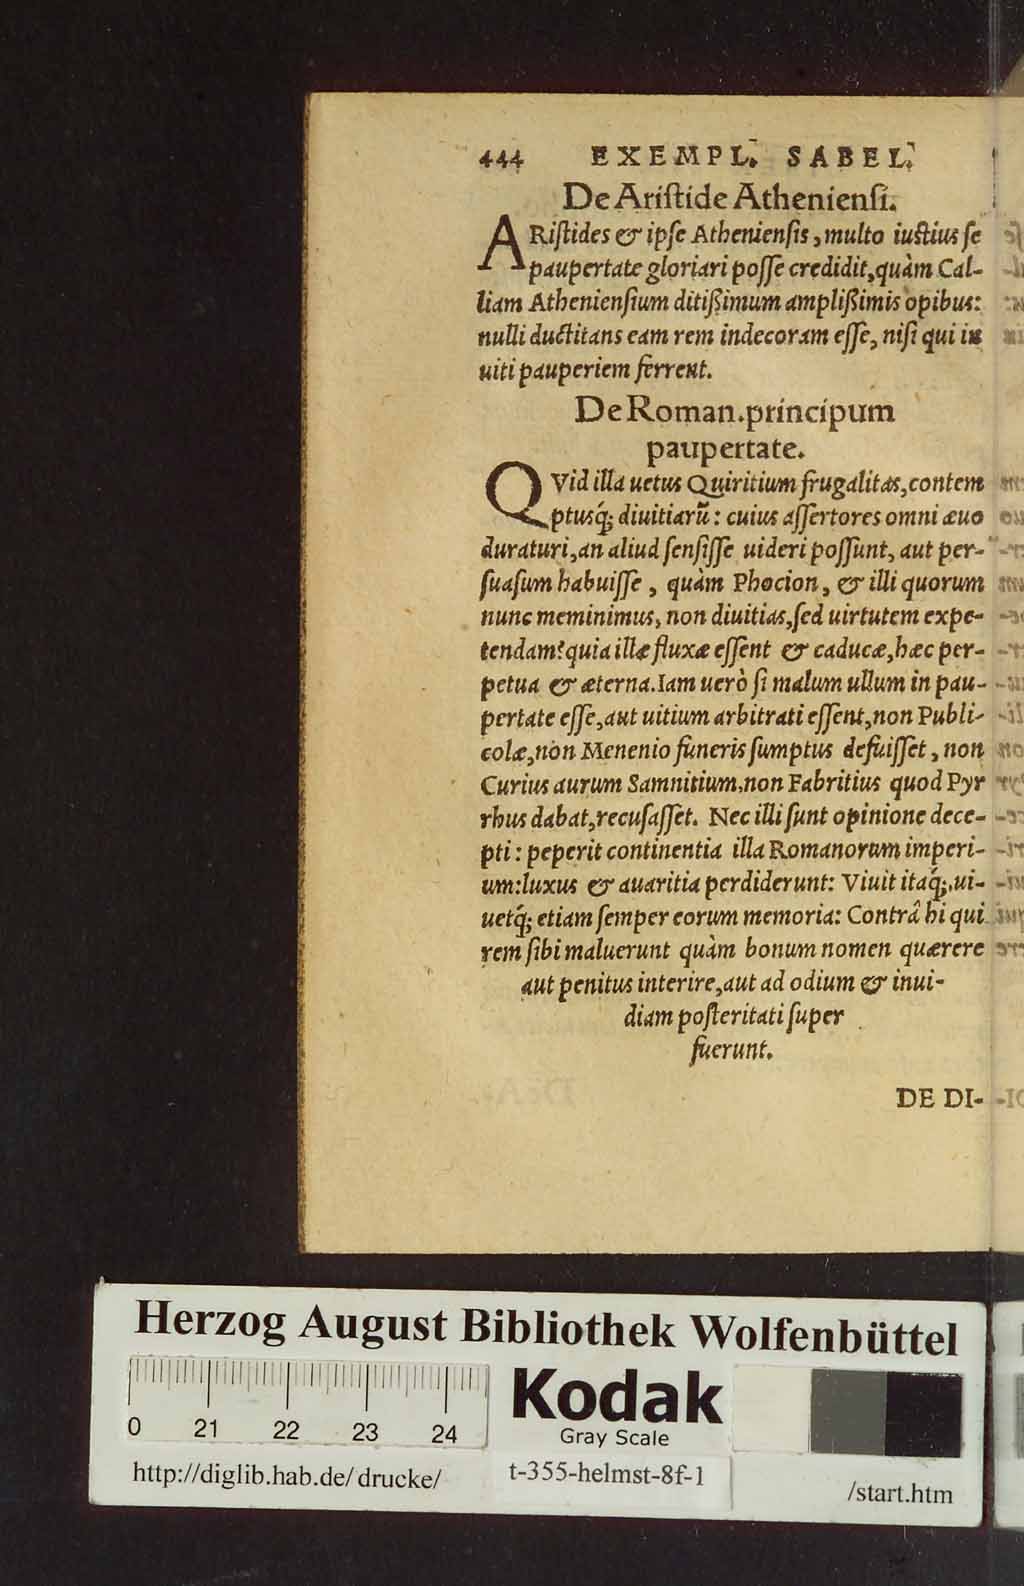 444 EXEMPL. SABEL.
De Ariſtide Athenienſi.
ARiſtides & ipſe Athenienſis, multo iuſtius ſe
paupertate gloriari poſſe credidit, quàm Cal-
liam Athenienſium ditißimum amplißimis opibus:
nulli ductitans eam rem indecoram eſſe, niſi qui in
uiti pauperiem ferrent.
De Roman. principum
paupertate.
QVid illa uetus Quiritium frugalitas, contem
ptusq́; diuitiarũ: cuius aſſertores omni æuo
duraturi, an aliud ſenſiſſe uideri poſſunt, aut per-
ſuaſum habuiſſe, quàm Phocion, & illi quorum
nunc meminimus, non diuitias, ſed uirtutem expe-
tendam? quia illæ fluxæ eſſent & caducæ, hæc per-
petua & æterna. Iam uerò ſi malum ullum in pau-
pertate eſſe, aut uitium arbitrati eſſent, non Publi-
colæ, non Menenio funeris ſumptus defuiſſet, non
Curius aurum Samnitium, non Fabritius quod Pyr
rhus dabat, recuſaſſet. Nec illi ſunt opinione dece-
pti: peperit continentia illa Romanorum imperi-
um: luxus & auaritia perdiderunt: Viuit itaq́;, ui-
uetq́; etiam ſemper eorum memoria: Contrâ hi qui
rem ſibi maluerunt quàm bonum nomen quærere
aut penitus interire, aut ad odium & inui-
diam poſteritati ſuper
fuerunt.
DE DI-
Herzog August Bibliothek Wolfenbüttel
0 21 22 23 24
Kodak
Gray Scale
http://diglib.hab.de/drucke/
t-355-helmst-8f-1
/start.htm